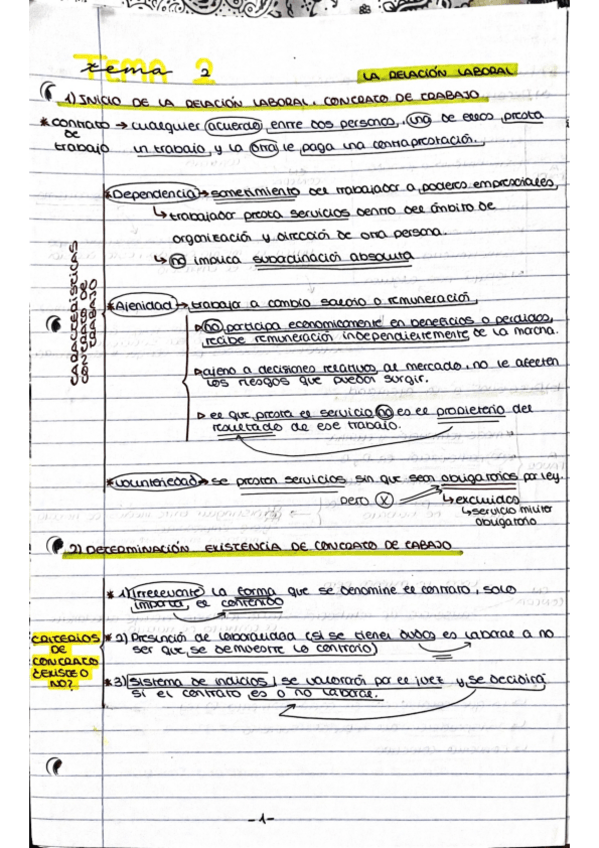 TEMA 2
tema 2
LA RELACIÓN LABORAL
1) INICIO DE LA RELACIÓN LABORAL. CONTRATO DE TRABAJO
* contrato de trabajo → cualquier acuerdo, entre dos personas, una de ellas presta
un trabajo, y la otra le paga una contraprestación.
* Dependencia → sometimiento del trabajador a poderes empresariales,
↳ trabajador presta servicios dentro del ámbito de
organización y dirección de otra persona.
↳ no implica subordinación absoluta
* Ajenidad → trabajar a cambio salario o remuneración
▷ no participa economicamente en beneficios o perdidas,
recibe remuneración independientemente de la marcha.
▷ ajeno a decisiones relativas al mercado, no le afecten
los riesgos que puedan surgir.
▷ el que presta el servicio no es el propietario del
resultado de ese trabajo.
* voluntariedad → se prestan servicios sin que sean obligatorios por ley.
pero X
↳ excluidos
↳ servicio militar
obligatorio
2) DETERMINACIÓN EXISTENCIA DE CONTRATO DE TABAJO
CRITERIOS
DE
CONTRATO
¿EXISTE O
NO?
* 1) Irrelevante la forma que se denomine el contrato, solo
importa el contenido
* 2) Presunción de laboralidad (si se tienen dudas es laboral a no
ser que, se demuestre lo contrario)
* 3) Sistema de indicios, se valorarán por el juez y se decidirá
si el contrato es o no laboral.
-1-